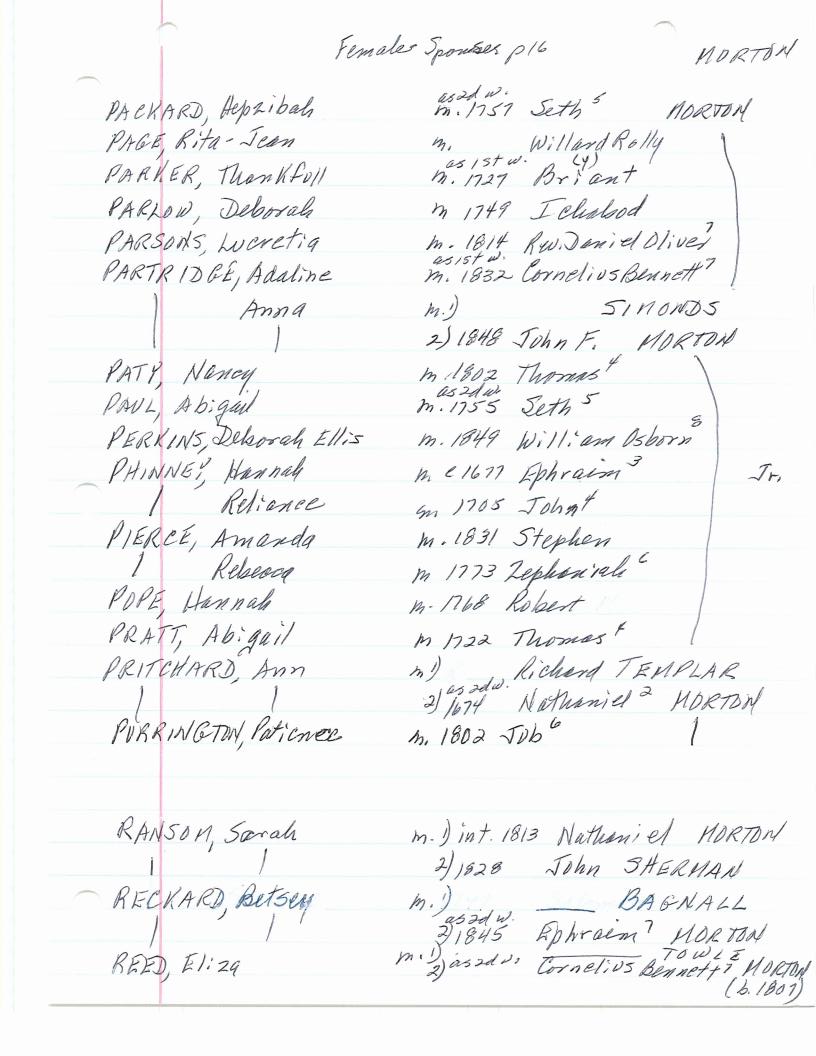 Females Spouses p16 MORTON
PACKARD, Hepzibah as 2d w. m. 1757 Seth 5 MORTON
PAGE, Rita-Jean m. Willard Rolly
PARKER, Thankfull as 1st w. m. 1727 Briant (y)
PARLOW, Deborah m 1749 Ichabod
PARSONS, Lucretia m. 1814 Rev. Daniel Oliver 7
PARTRIDGE, Adaline as 1st w. m. 1832 Cornelius Bennett 7
Anna m. 1) SIMONDS
2) 1848 John F. MORTON
PATY, Nancy m. 1802 Thomas 4
PAUL, Abigail as 2d w. m. 1755 Seth 5
PERKINS, Deborah Ellis m. 1849 William Osborn 8
PHINNEY, Hannah m c 1677 Ephraim 3 Jr.
Reliance m 1705 John 4
PIERCE, Amanda m. 1831 Stephen
Rebecca m 1773 Zephaniah 6
POPE, Hannah m. 1768 Robert
PRATT, Abigail m 1722 Thomas 4
PRITCHARD, Ann m 1) Richard TEMPLAR
2) as 2d w. 1674 Nathaniel 2 MORTON
PURRINGTON, Patience m. 1802 Job 6
RANSOM, Sarah m. 1) int. 1813 Nathaniel MORTON
2) 1828 John SHERMAN
RECKARD, Betsey m. 1) ____ BAGNALL
as 2d w. 2) 1845 Ephraim 7 MORTON
REED, Eliza m. 1) ____ TOWLE
2) as 2d w. Cornelius Bennett 7 MORTON
(b. 1807)